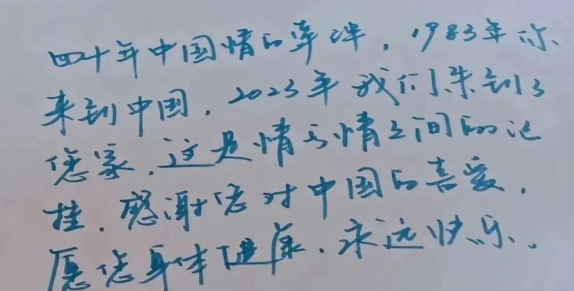 四十年中国情的牵绊，1983年你、
来到中国，2023年我们来到了
您家，这是情与情之间的记
挂，感谢您对中国的喜爱，
愿您身体健康、永远快乐。